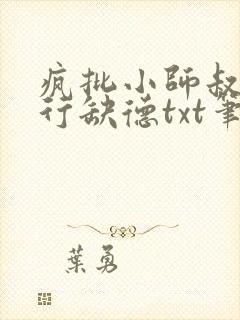 疯批小师叔
行缺德txt笔
葉勇